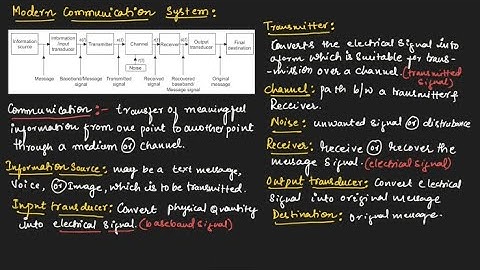 Modern Communication System:
Information source
Information Input transducer
Transmitter
Channel
Receiver
Output transducer
Final destination
Noise
Message
Baseband/Message signal
Transmitted signal
Received signal
Recovered baseband/ Message signal
Original message
Communication :- transfer of meaningful
information from one point to another point
through a medium or channel.
Information Source: may be a text message,
Voice, or Image, which is to be transmitted.
Input transducer: Convert physical Quantity
into electrical signal. (baseband signal)
Transmitter:
Converts the electrical signal into
a form which is suitable for trans-
-mission over a channel. (transmitted signal)
Channel: path b/w a transmitter &
Receiver.
Noise: unwanted signal or distrubance
Receiver: Receive or Recover the
message signal. (electrical signal)
Output transducer: Convert electrical
signal into original message
Destination: Original message.